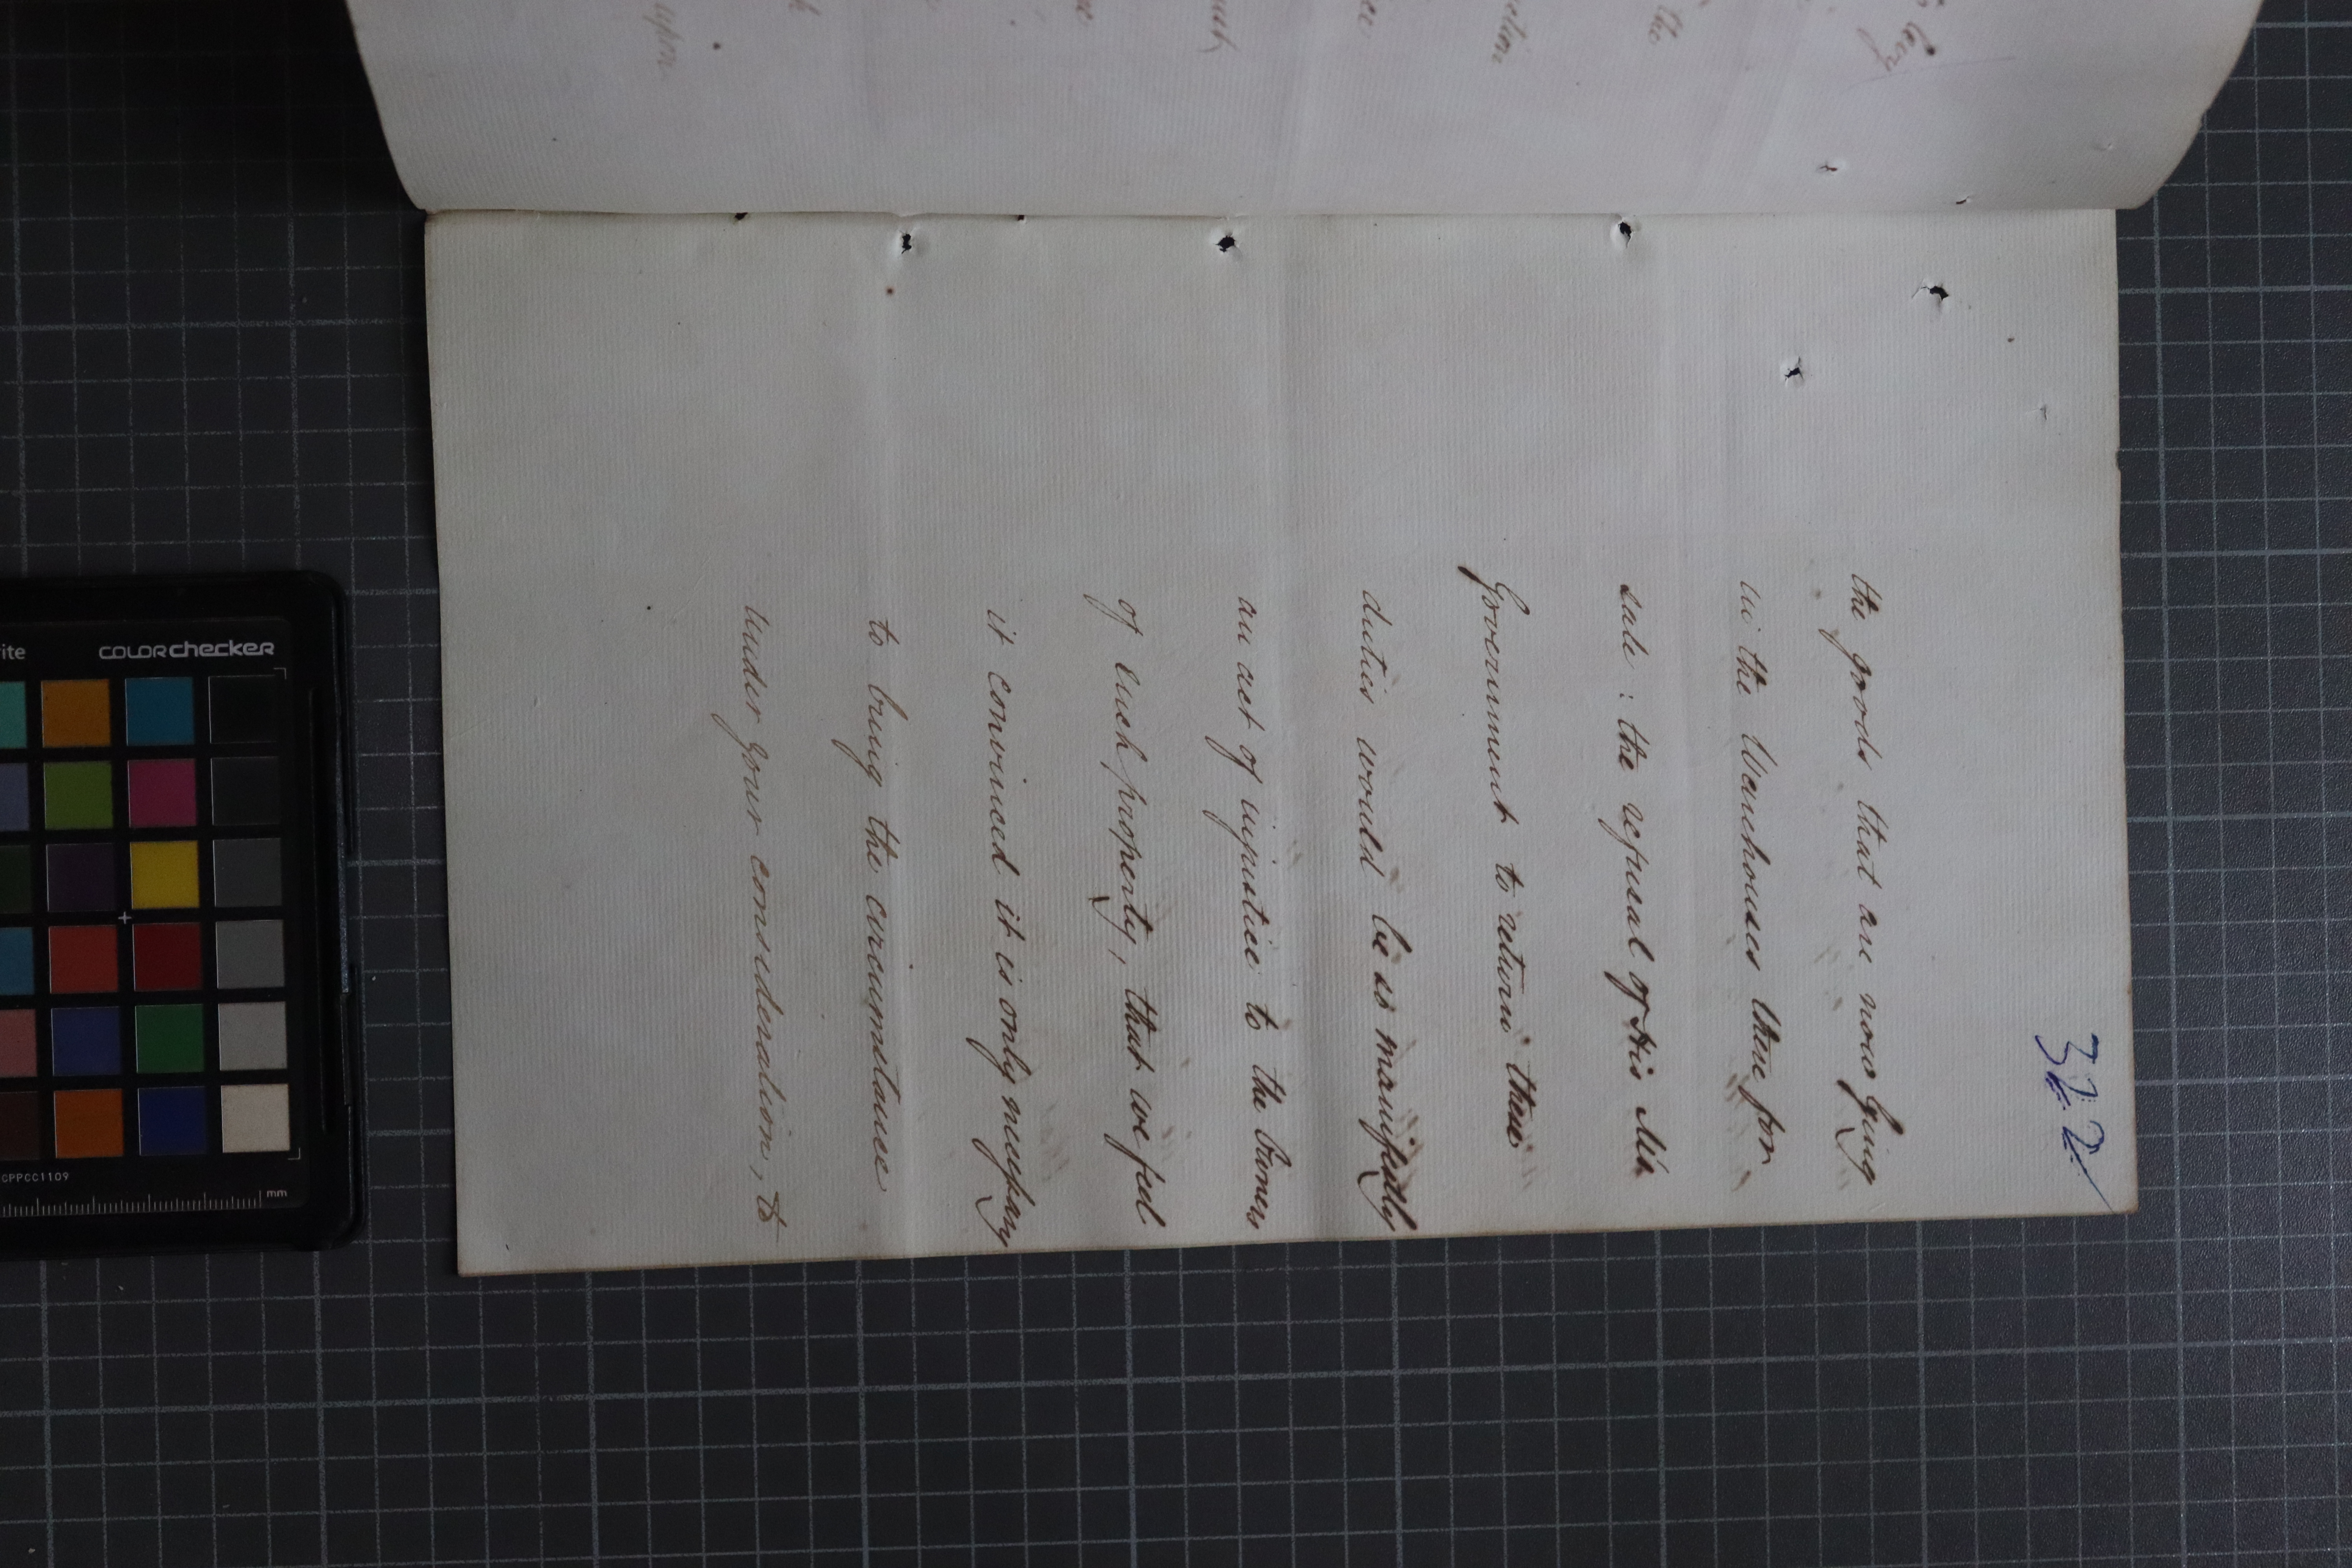 322
the goods that are now lying
in the Warehouses there for
sale: the refusal of His Ma.
Government to return these
duties would be so manifestly
an act of injustice to the Owners
of such property, that we feel
it convinced it is only necessary
to bring the circumstance
under your consideration, to
levy
the
upon
colorchecker
CPPCC1109
mm